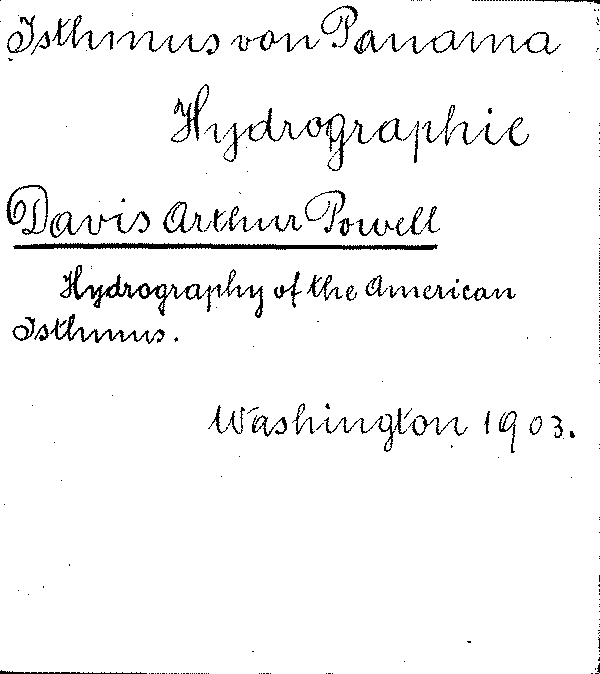 Isthmus von Panama
Hydrographie
Davis Arthur Powell
Hydrography of the American
Isthmus.
Washington 1903.